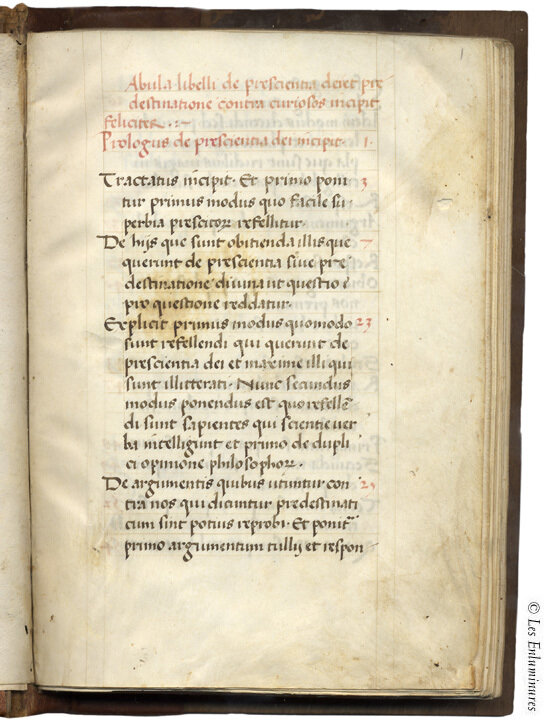 1
Abula libelli de prescientia dei et pre-
destinatione contra curiosos incipit
feliciter.
Prologus de prescientia dei incipit. 1.
Tractatus incipit. Et primo poni 3
tur primus modus quo facile su
perbia prescitoꝝ refellitur.
De hijs que sunt obitienda illis que 7
querunt de prescientia siue pre
destinatione diuina ut questio
pro questione reddatur.
Explicit primus modus quomodo 23
sunt refellendi qui querunt de
prescientia dei et maxime illi qui
sunt illitterati. Nunc secundus
modus ponendus est quo refellē
di sunt sapientes qui scientie uer
ba intelligunt et primo de dupli
ci opinione philosophoꝝ.
De argumentis quibus utuntur con 25
tra nos qui dicuntur predestinati
cum sint potius reprobi. Et ponit᷑
primo argumentum tullij et respon-
© Les Enluminures